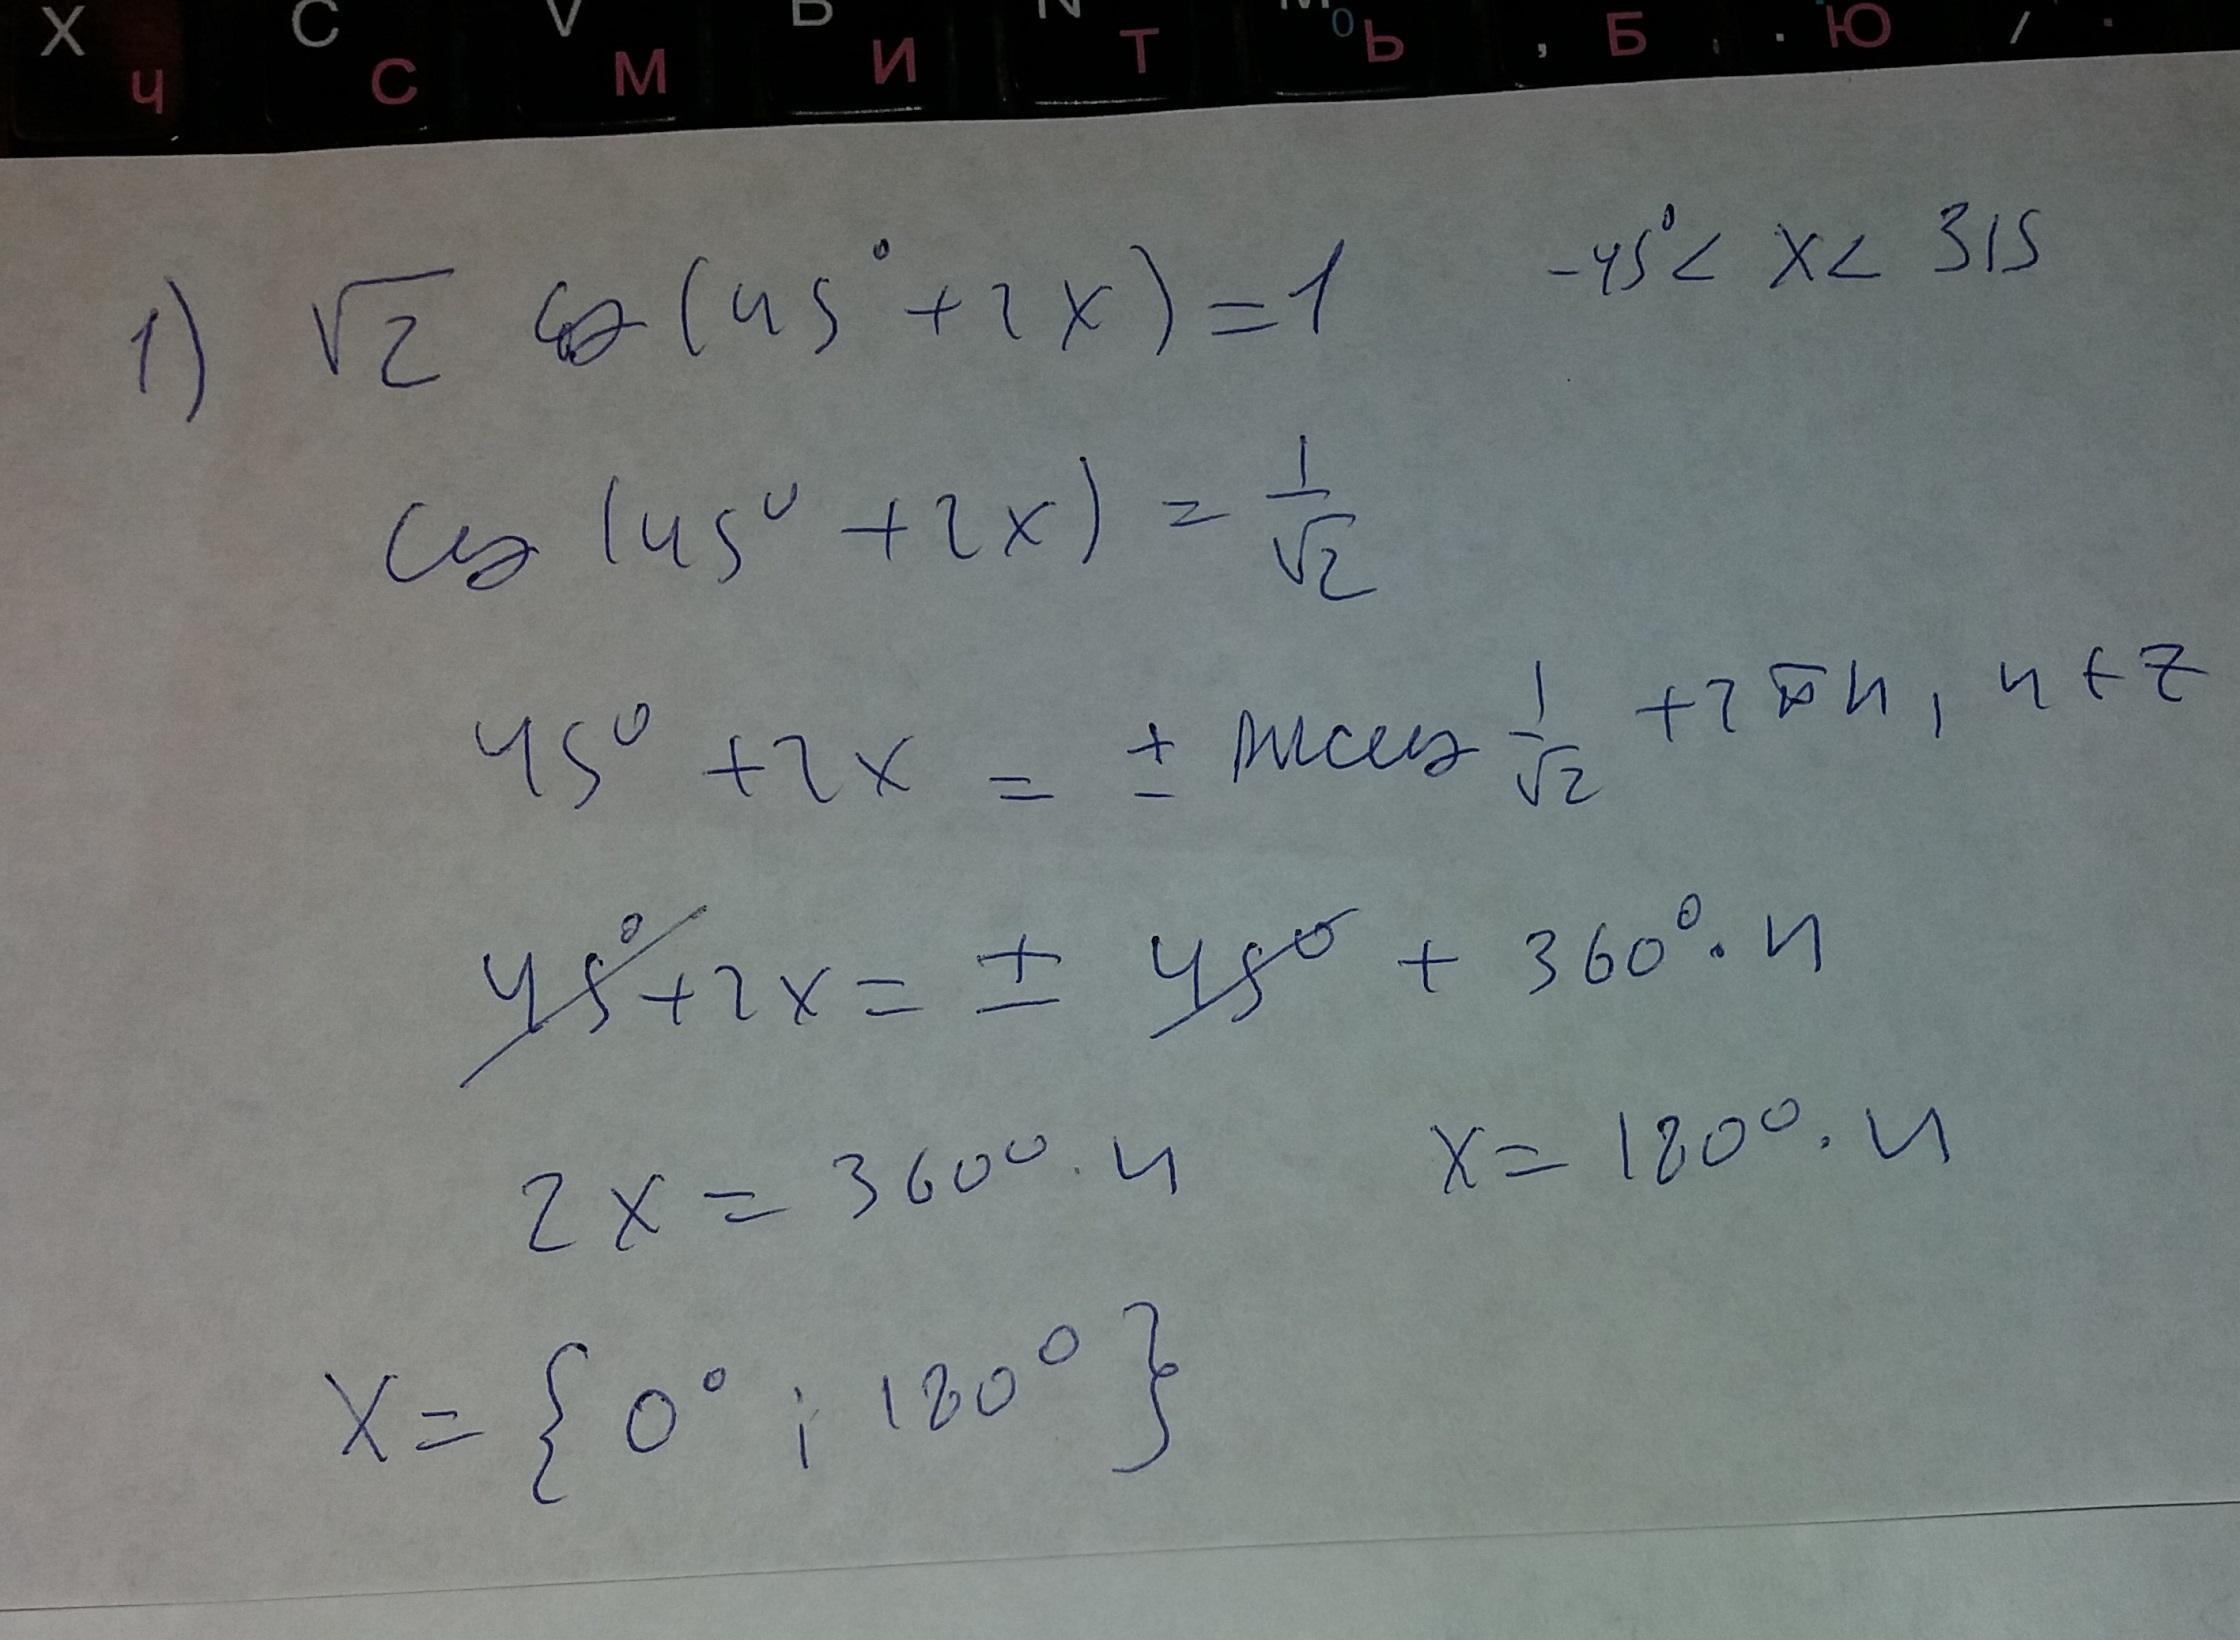 X Ч C С V М B И N Т M 0 Ь , Б . Ю /
1) √2 cos (45° + 2x) = 1 -45° < x < 315
cos (45° + 2x) = 1/√2
45° + 2x = ± arccos 1/√2 + 2πn, n ∈ Z
45° + 2x = ± 45° + 360° · n
2x = 360° · n x = 180° · n
x = { 0° ; 180° }